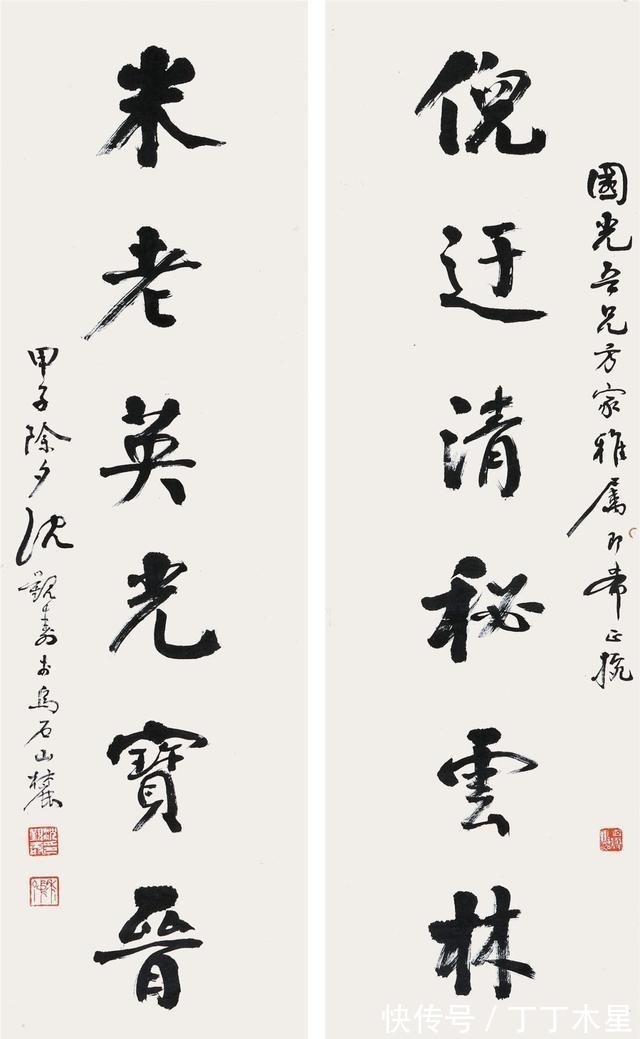 國光吾兄方家雅属即希正
倪迂清秘雲林
米老英光寶晉
甲子除夕沈覲壽於烏石山麓
快传号／丁丁木星